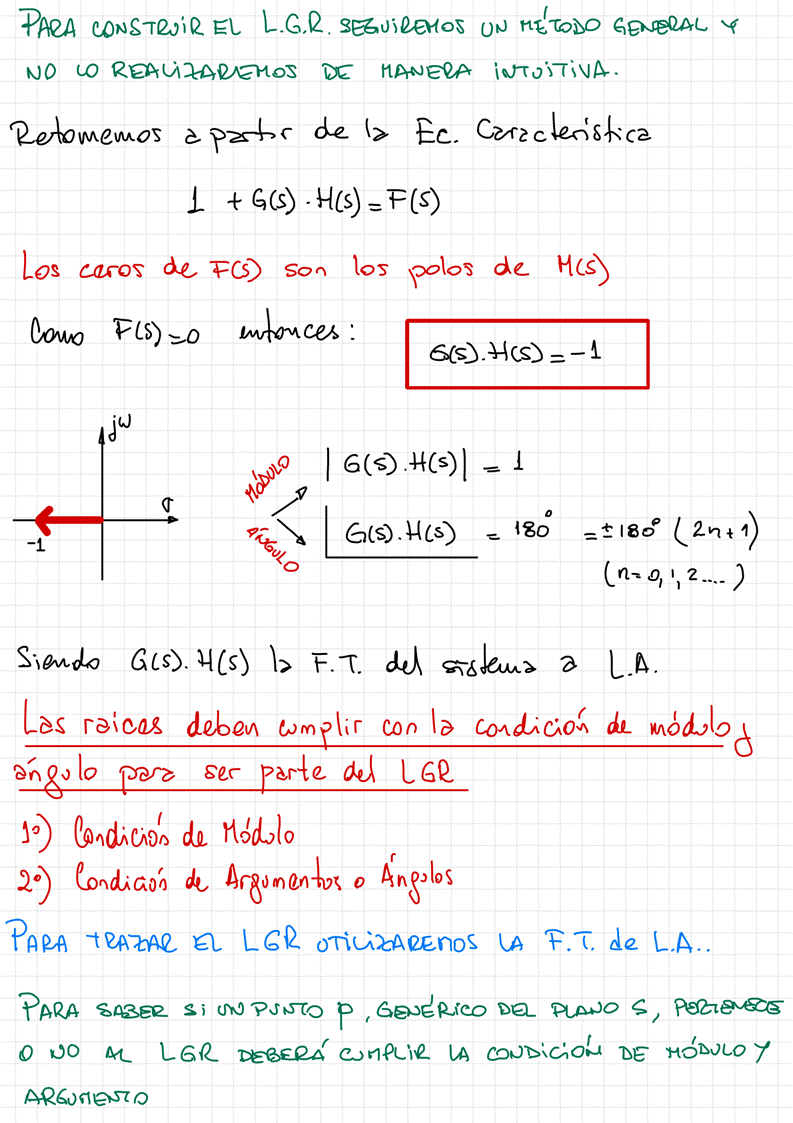 PARA CONSTRUIR EL L.G.R. SEGUIREMOS UN MÉTODO GENERAL Y
NO LO REALIZAREMOS DE MANERA INTUITIVA.
Retomemos a partir de la Ec. Característica
1 + G(s) . H(s) = F(s)
Los ceros de F(s) son los polos de M(s)
Como F(s) = 0 entonces:
G(s).H(s) = -1
jω
σ
-1
MÓDULO
|G(s).H(s)| = 1
ÁNGULO
G(s).H(s) = 180° = ±180° (2n+1)
(n = 0, 1, 2....)
Siendo G(s).H(s) la F.T. del sistema a L.A.
Las raices deben cumplir con la condición de módulo y
ángulo para ser parte del LGR
1°) Condición de Módulo
2°) Condición de Argumentos o Ángulos
PARA TRAZAR EL LGR UTILIZAREMOS LA F.T. de L.A..
PARA SABER SI UN PUNTO P, GENÉRICO DEL PLANO S, PERTENECE
O NO AL LGR DEBERÁ CUMPLIR LA CONDICIÓN DE MÓDULO Y
ARGUMENTO